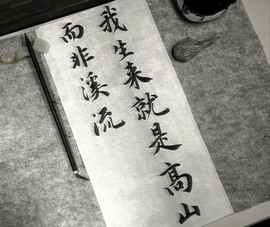 我生来就是高山
而非溪流